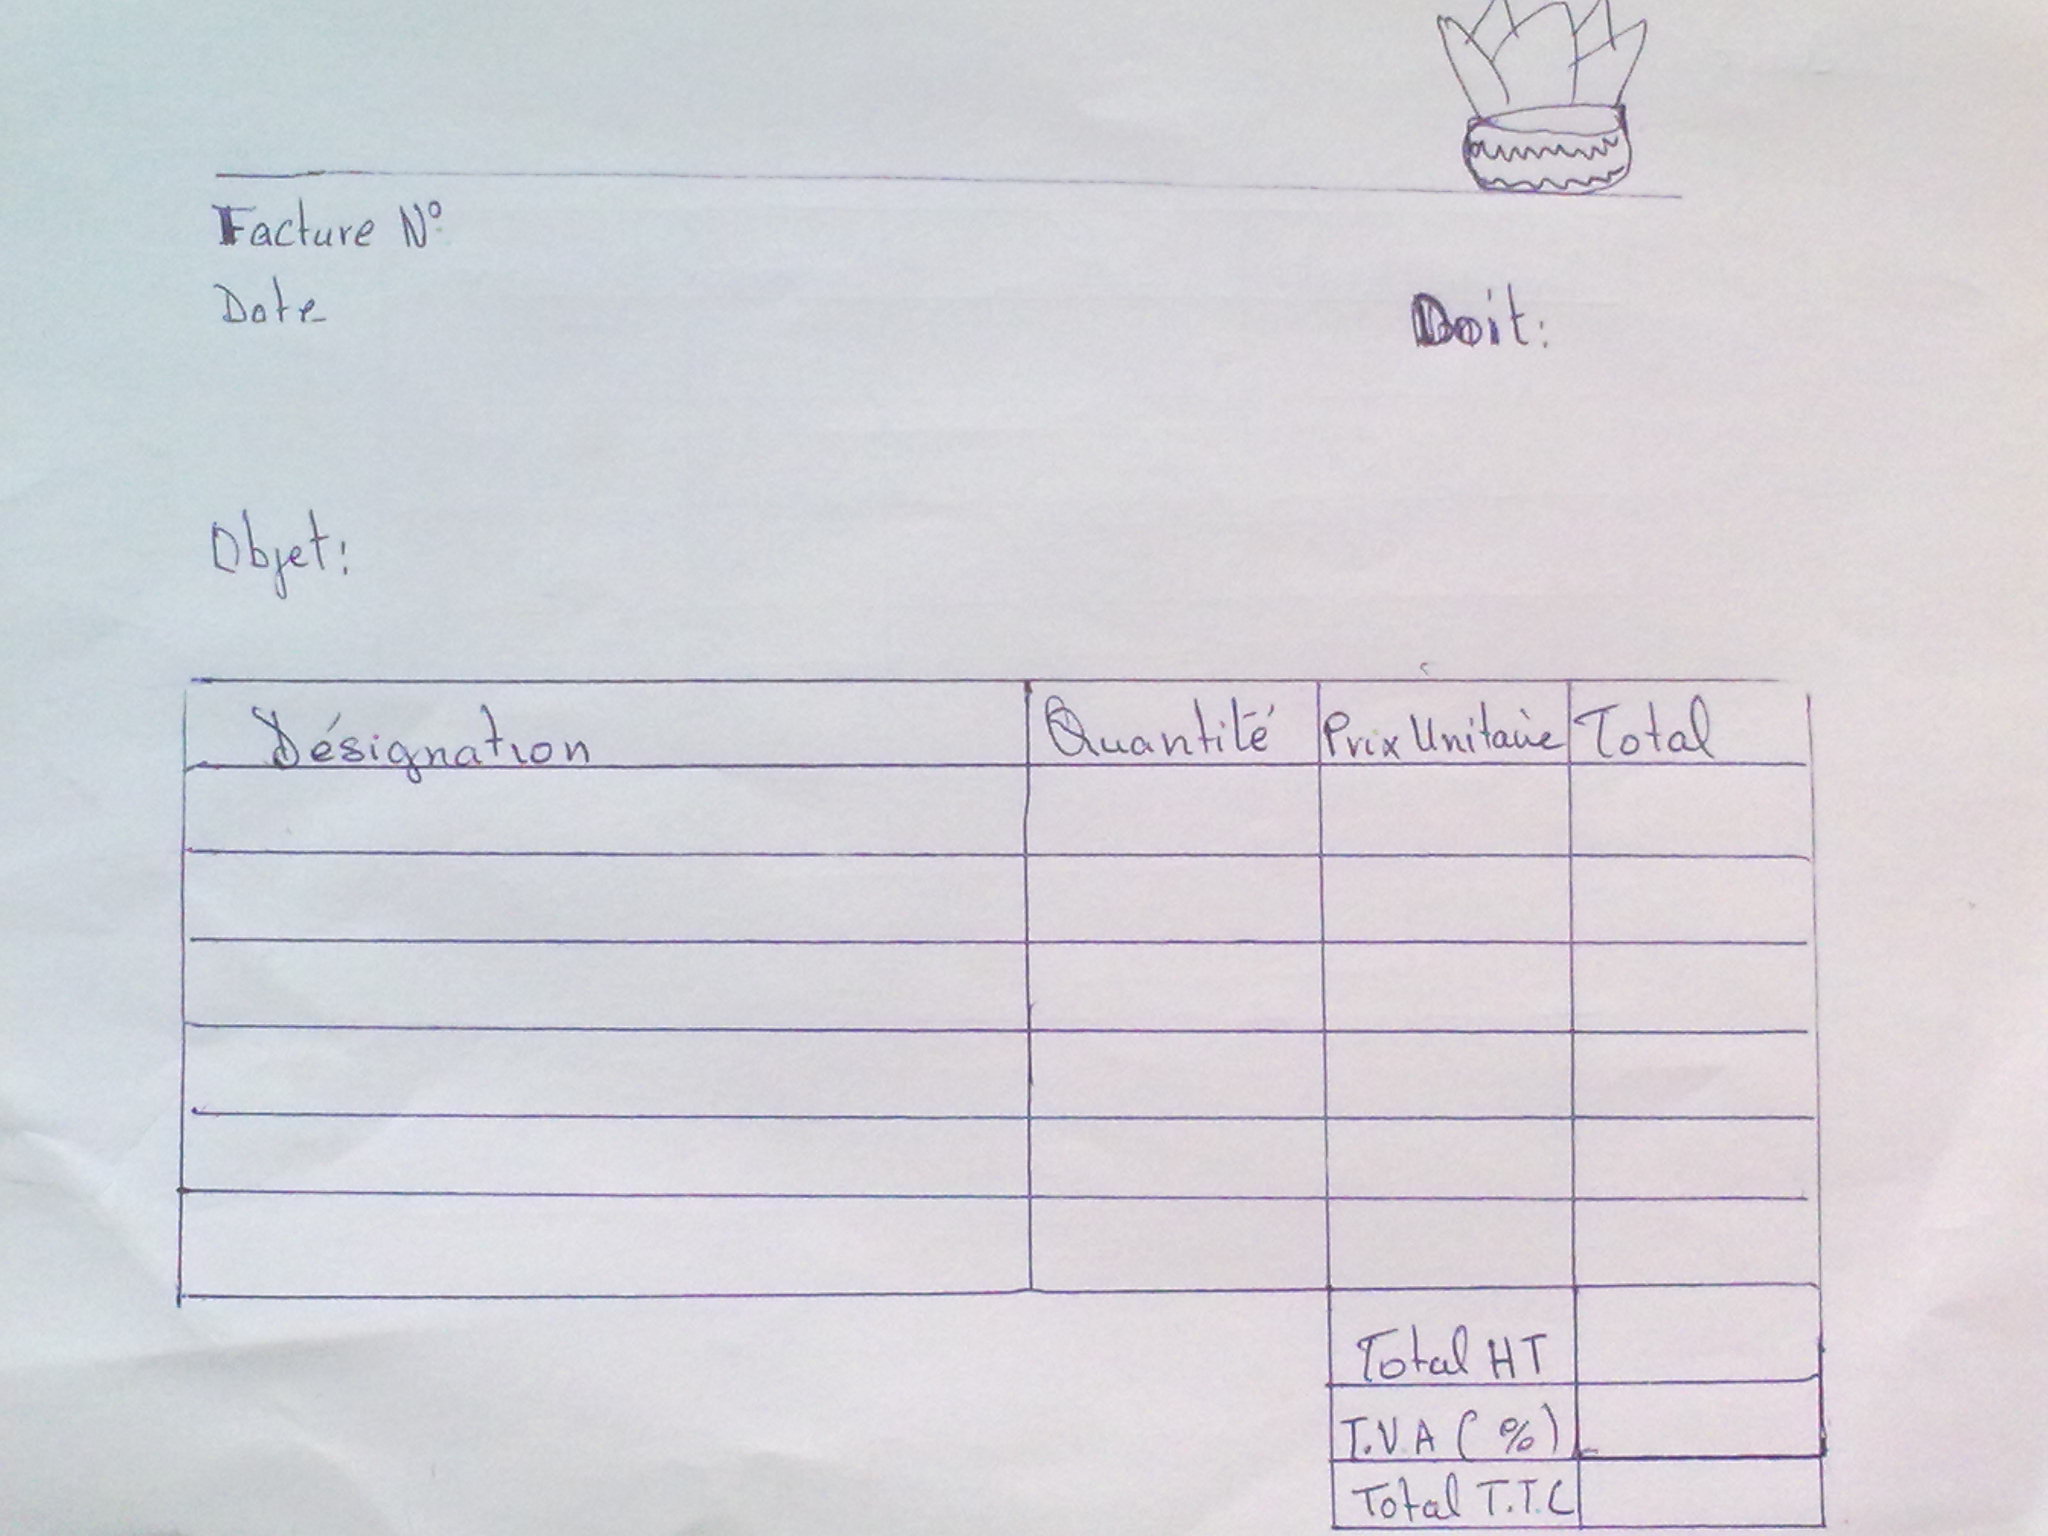 Facture N°
Date
Doit:
Objet:
Désignation Quantité Prix Unitaire Total
Total HT
T.V.A ( %)
Total T.T.C